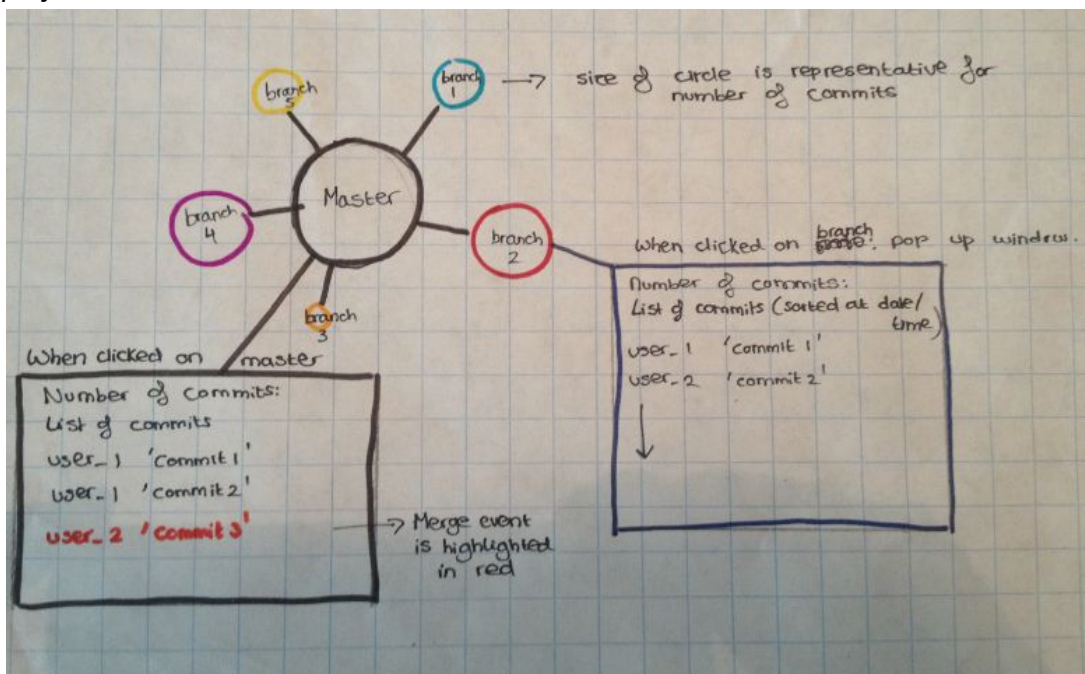 branch
5
branch
1
→ size of circle is representative for
number of commits
Master
branch
4
branch
2
branch
3
When clicked on branch: pop up windows.
Number of commits:
List of commits (sorted at date/
time)
user_1 'commit 1'
user_2 'commit 2'
When clicked on master
Number of commits:
List of commits
user_1 'commit 1'
user_1 'commit 2'
user_2 'commit 3'
→ Merge event
is highlighted
in red